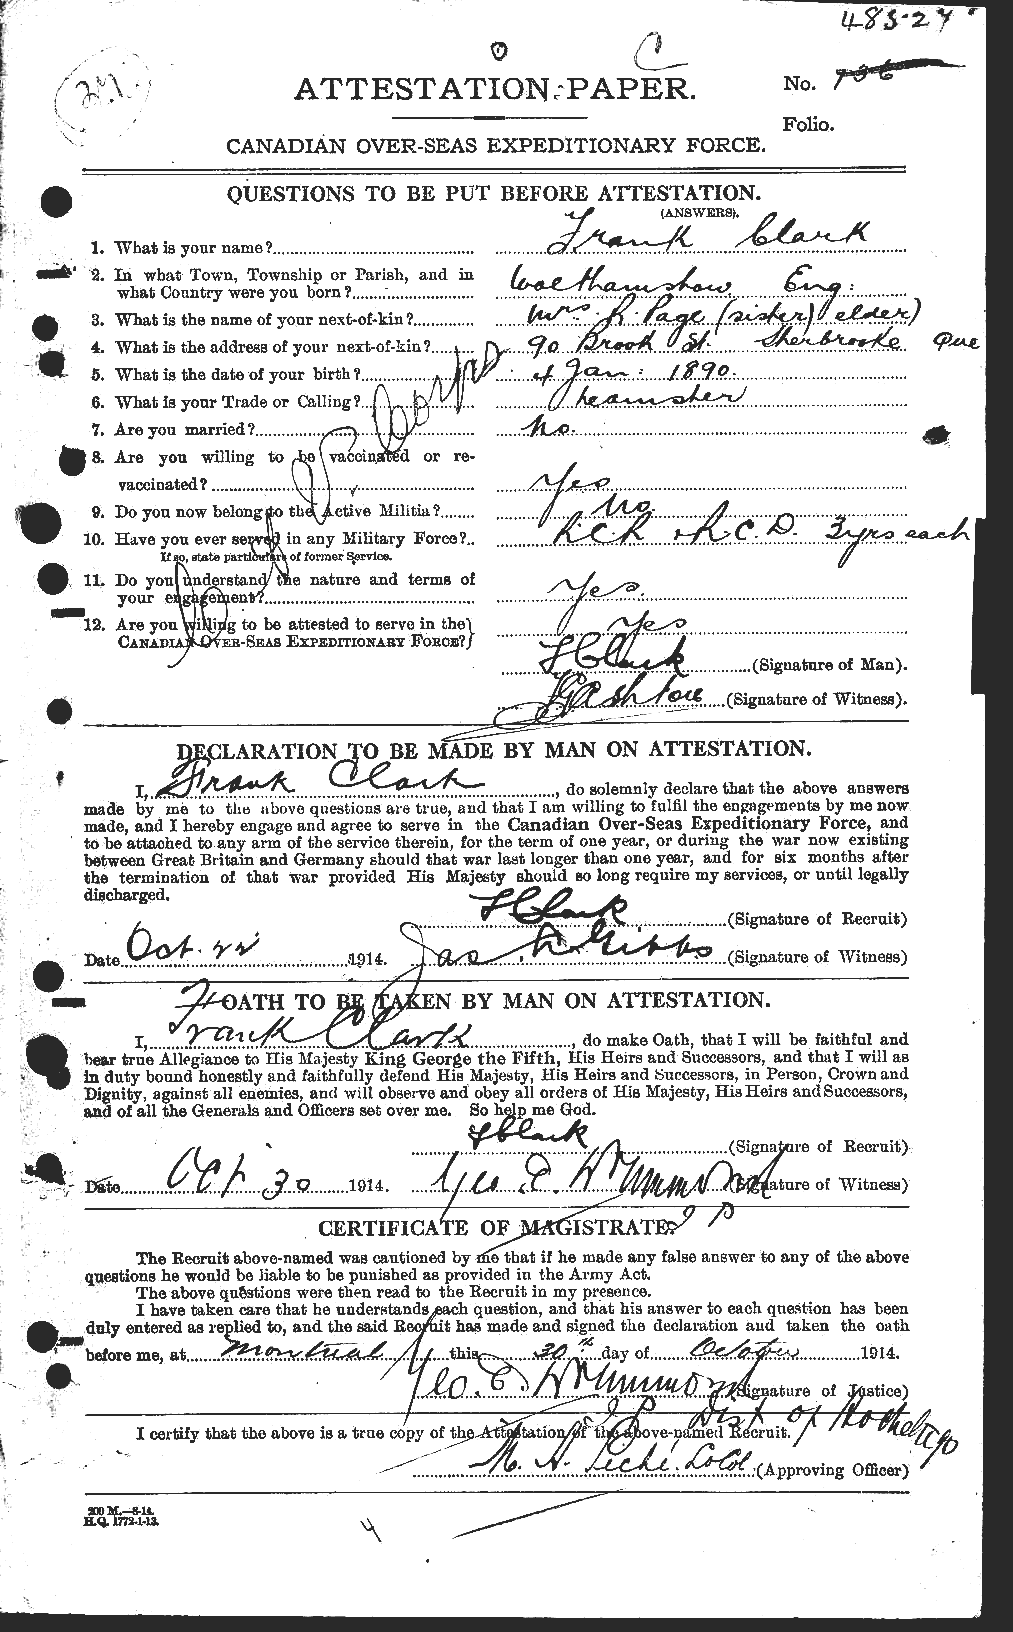 48327
C
24.
ATTESTATION PAPER.
No. 736
Folio.
CANADIAN OVER-SEAS EXPEDITIONARY FORCE.
QUESTIONS TO BE PUT BEFORE ATTESTATION.
(ANSWERS).
1. What is your name? Frank Clark
2. In what Town, Township or Parish, and in
what Country were you born? Walthamstow Eng:
3. What is the name of your next-of-kin? Mrs. R. Page (sister) elder)
4. What is the address of your next-of-kin? 90 Brook St. Sherbrooke Que
5. What is the date of your birth? 4 Jan: 1890.
6. What is your Trade or Calling? teamster
7. Are you married? No.
8. Are you willing to be vaccinated or re-
vaccinated? Yes
9. Do you now belong to the Active Militia? No
10. Have you ever served in any Military Force?.. RCR & R.C.D. 3 yrs each
If so, state particulars of former Service.
11. Do you understand the nature and terms of
your engagement? Yes.
12. Are you willing to be attested to serve in the
CANADIAN OVER-SEAS EXPEDITIONARY FORCE? Yes
F Clark (Signature of Man).
Ashton (Signature of Witness).
DECLARATION TO BE MADE BY MAN ON ATTESTATION.
I, Frank Clark, do solemnly declare that the above answers
made by me to the above questions are true, and that I am willing to fulfil the engagements by me now
made, and I hereby engage and agree to serve in the Canadian Over-Seas Expeditionary Force, and
to be attached to any arm of the service therein, for the term of one year, or during the war now existing
between Great Britain and Germany should that war last longer than one year, and for six months after
the termination of that war provided His Majesty should so long require my services, or until legally
discharged.
F Clark (Signature of Recruit)
Date Oct. 22 1914. Jas Gibbs (Signature of Witness)
OATH TO BE TAKEN BY MAN ON ATTESTATION.
I, Frank Clark, do make Oath, that I will be faithful and
bear true Allegiance to His Majesty King George the Fifth, His Heirs and Successors, and that I will as
in duty bound honestly and faithfully defend His Majesty, His Heirs and Successors, in Person, Crown and
Dignity, against all enemies, and will observe and obey all orders of His Majesty, His Heirs and Successors,
and of all the Generals and Officers set over me. So help me God.
F Clark (Signature of Recruit)
Date Oct 30 1914. Geo. E. Drummond (Signature of Witness)
J P
CERTIFICATE OF MAGISTRATE.
The Recruit above-named was cautioned by me that if he made any false answer to any of the above
questions he would be liable to be punished as provided in the Army Act.
The above questions were then read to the Recruit in my presence.
I have taken care that he understands each question, and that his answer to each question has been
duly entered as replied to, and the said Recruit has made and signed the declaration and taken the oath
before me, at Montreal this 30th day of October 1914.
Geo. E. Drummond (Signature of Justice)
J P Dist of Hochelaga
I certify that the above is a true copy of the Attestation of the above-named Recruit.
(Approving Officer)
200 M.—8-14.
H.Q. 1772-1-13.
4